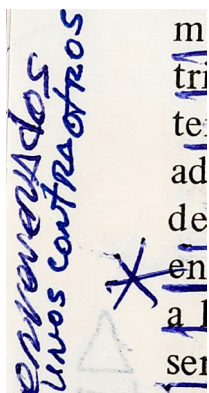 envenenados
unos contra otros
m
tri
te
ad
de
en
a l
ser